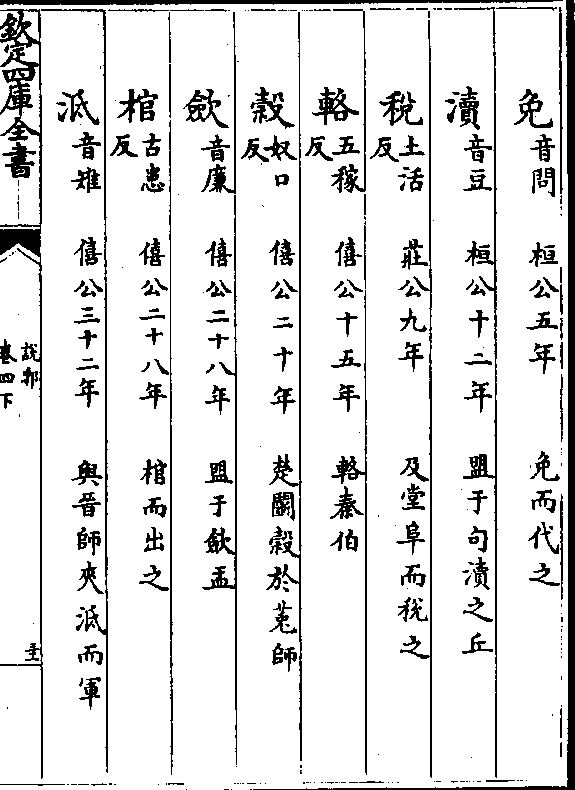 免音問　桓公五年　免而代之
瀆音豆　桓公十二年　盟于句瀆之丘
稅土活反　莊公九年　及堂阜而稅之
輅五稼反　僖公十五年　輅秦伯
穀奴口反　僖公二十年　楚鬬穀於菟師
歛音廉　僖公二十八年　盟于歛盂
棺古患反　僖公二十八年　棺而出之
泜音雉　僖公三十二年　與晉師夾泜而軍
欽定四庫全書
說郛
卷四下